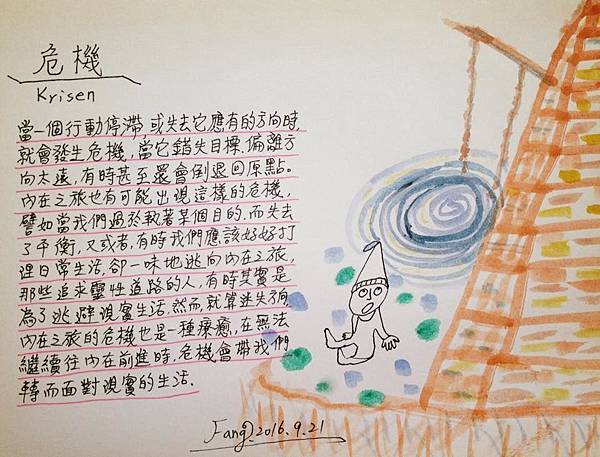 危機
Krisen
當一個行動停滯,或失去它應有的方向時,
就會發生危機,當它錯失目標、偏離方
向太遠,有時甚至還會倒退回原點。
內在之旅也有可能出現這樣的危機,
譬如當我們過於執著某個目的,而失去
了平衡,又或者,有時我們應該好好打
理日常生活,卻一味地逃向內在之旅,
那些追求靈性道路的人,有時其實是
為了逃避現實生活.然而,就算迷失了方向
內在之旅的危機也是一種療癒,在無法
繼續往內在前進時,危機會帶我們
轉而面對現實的生活.
Fang 2016.9.21